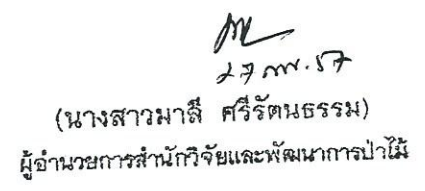 27 กพ. 57
(นางสาวมาลี ศรีรัตนธรรม)
ผู้อำนวยการสำนักวิจัยและพัฒนาการป่าไม้